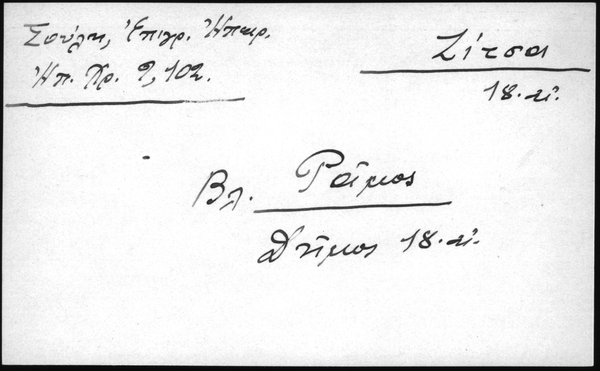 Σούλη, Ἐπιγρ. Ἠπειρ.
Ἠπ. Χρ. 9, 102.
Ζίτσα
18. αἰ.
Βλ. Ράμμος
Δῆμος 18. αἰ.